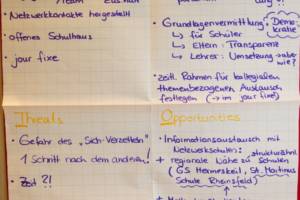 Team
Netzwerkkontakte hergestellt
• offenes Schulhaus
• jour fixe
• Grundlagenvermittlung: Demokratie
↳ für Schüler
↳ Eltern: Transparenz
↳ Lehrer: Umsetzung
• zeitl. Rahmen für kollegialen
themenbezogenen Austausch
festlegen (→ im jour fixe)
Threats
• Gefahr des „Sich-Verzettelns"
1 Schritt nach dem anderen!
• Zeit ?!
Opportunities
• Informationsaustausch mit
Netzwerkschulen: strukturähnl.
+ regionale Nähe zu Schulen
(GS Hermeskeil, St. Martinus
Schule Rheinsfeld)